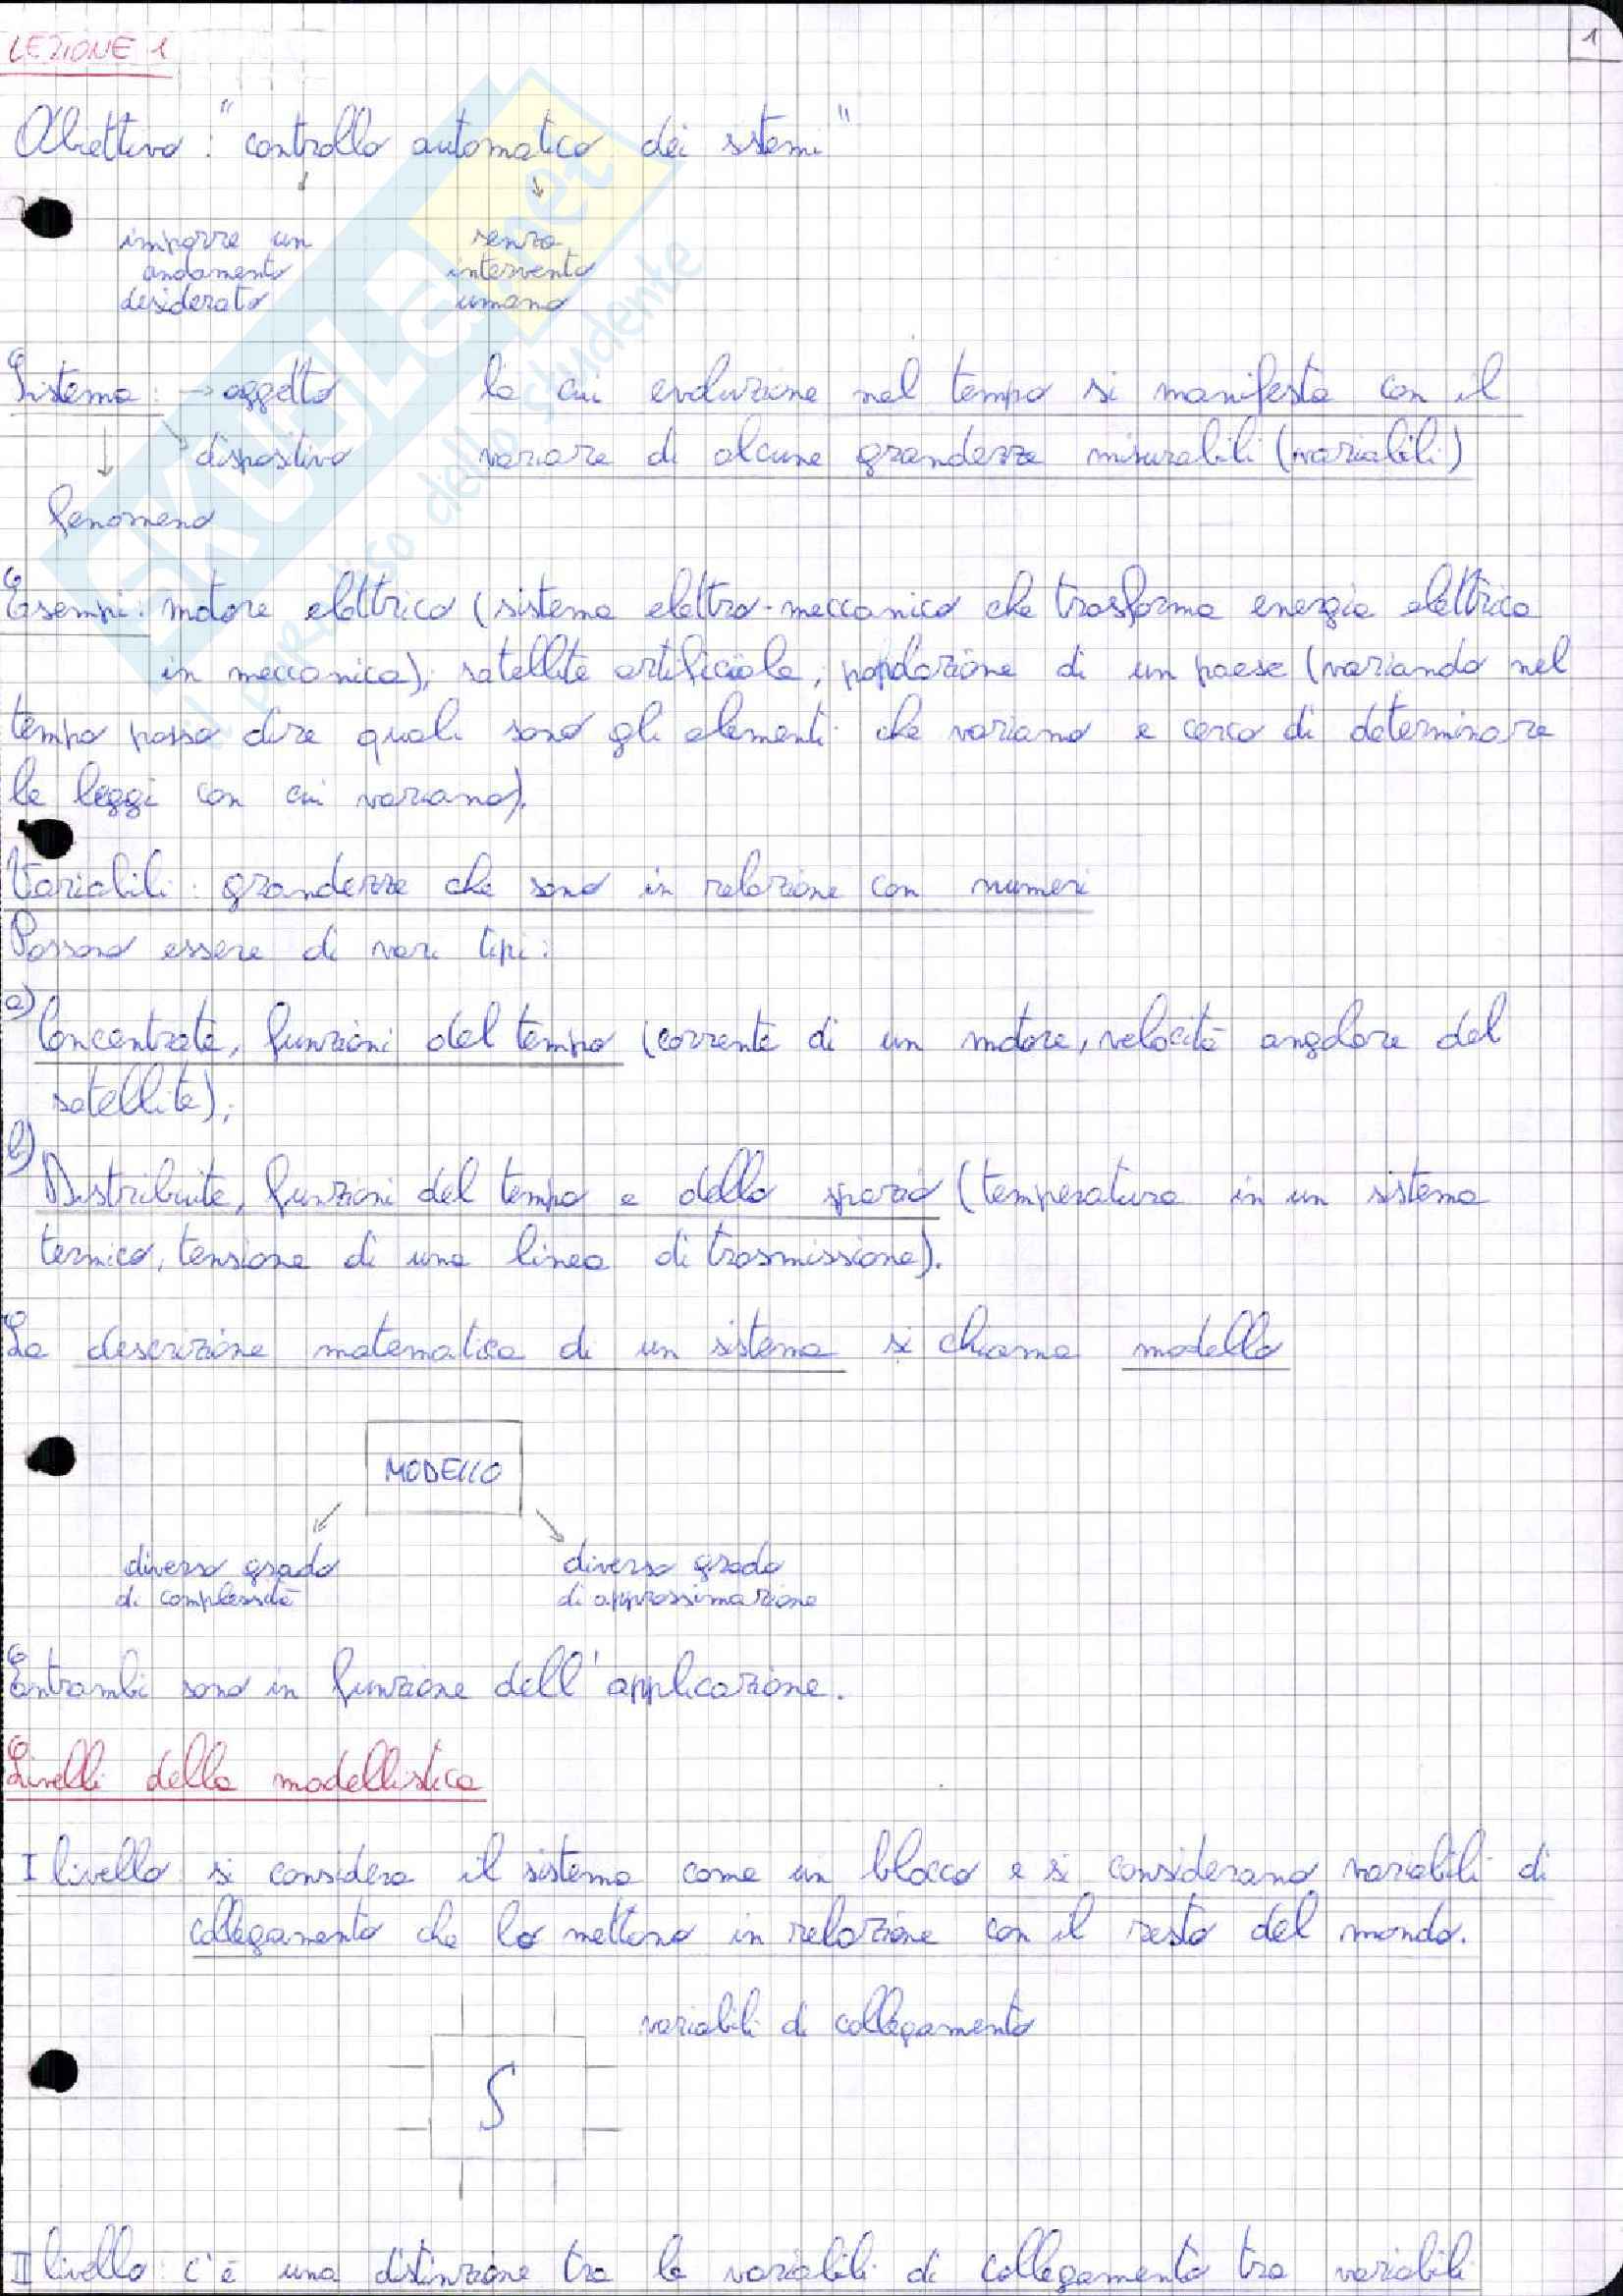 LEZIONE 1
1
Obiettivo: "controllo automatico dei sistemi"
imporre un senza
andamento intervento
desiderato umano
Sistema: → oggetto la cui evoluzione nel tempo si manifesta con il
dispositivo variare di alcune grandezze misurabili (variabili)
fenomeno
Esempi: motore elettrico (sistema elettro-meccanico che trasforma energia elettrica
in meccanica); satellite artificiale; popolazione di un paese (variando nel
tempo posso dire quali sono gli elementi che variano e cerco di determinare
le leggi con cui variano).
Variabili: grandezze che sono in relazione con numeri
Possono essere di vari tipi:
a)
Concentrate, funzioni del tempo (corrente di un motore, velocità angolare del
satellite);
b)
Distribuite, funzioni del tempo e dello spazio (temperatura in un sistema
termico, tensione di una linea di trasmissione).
La descrizione matematica di un sistema si chiama modello
MODELLO
diverso grado diverso grado
di complessità di approssimazione
Entrambi sono in funzione dell'applicazione.
Livelli della modellistica
I livello: si considera il sistema come un blocco e si considerano variabili di
collegamento che lo mettono in relazione con il resto del mondo.
variabili di collegamento
S
II livello: c'è una distinzione tra le variabili di collegamento tra variabili
SKUOLA.net
il paradiso dello studente